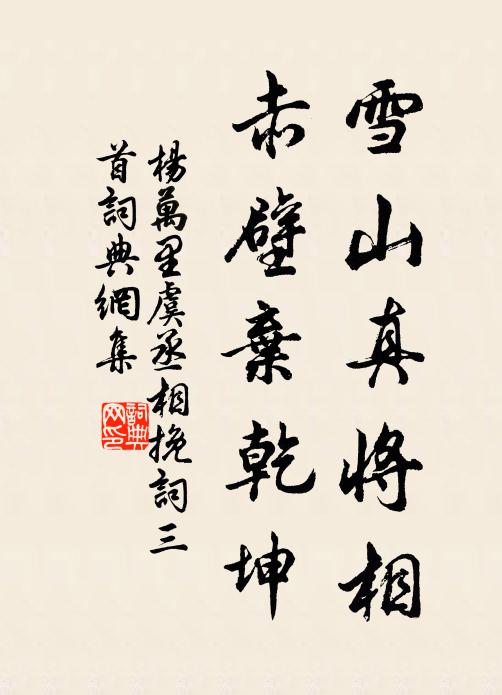 雪山真將相
赤壁棄乾坤
楊萬里虞丞相挽詞三
首詞典網集
詞典
网印